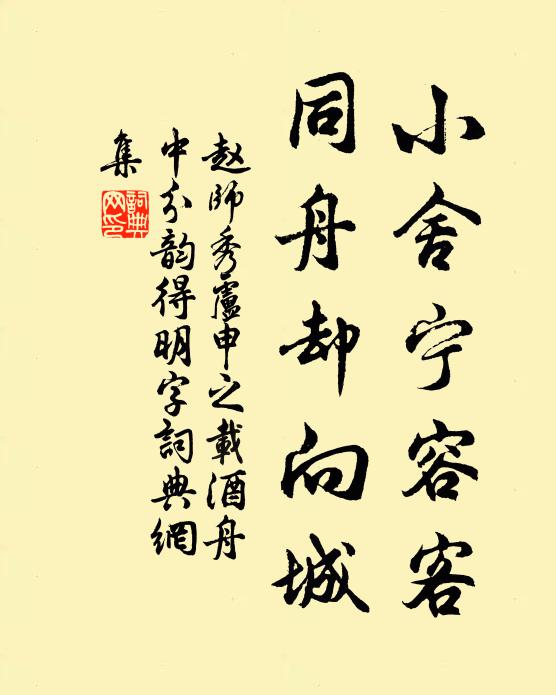 小舍宁容客
同舟却向城
赵師秀盧申之載酒舟
中分韵得明字詞典網
集
詞典
网印